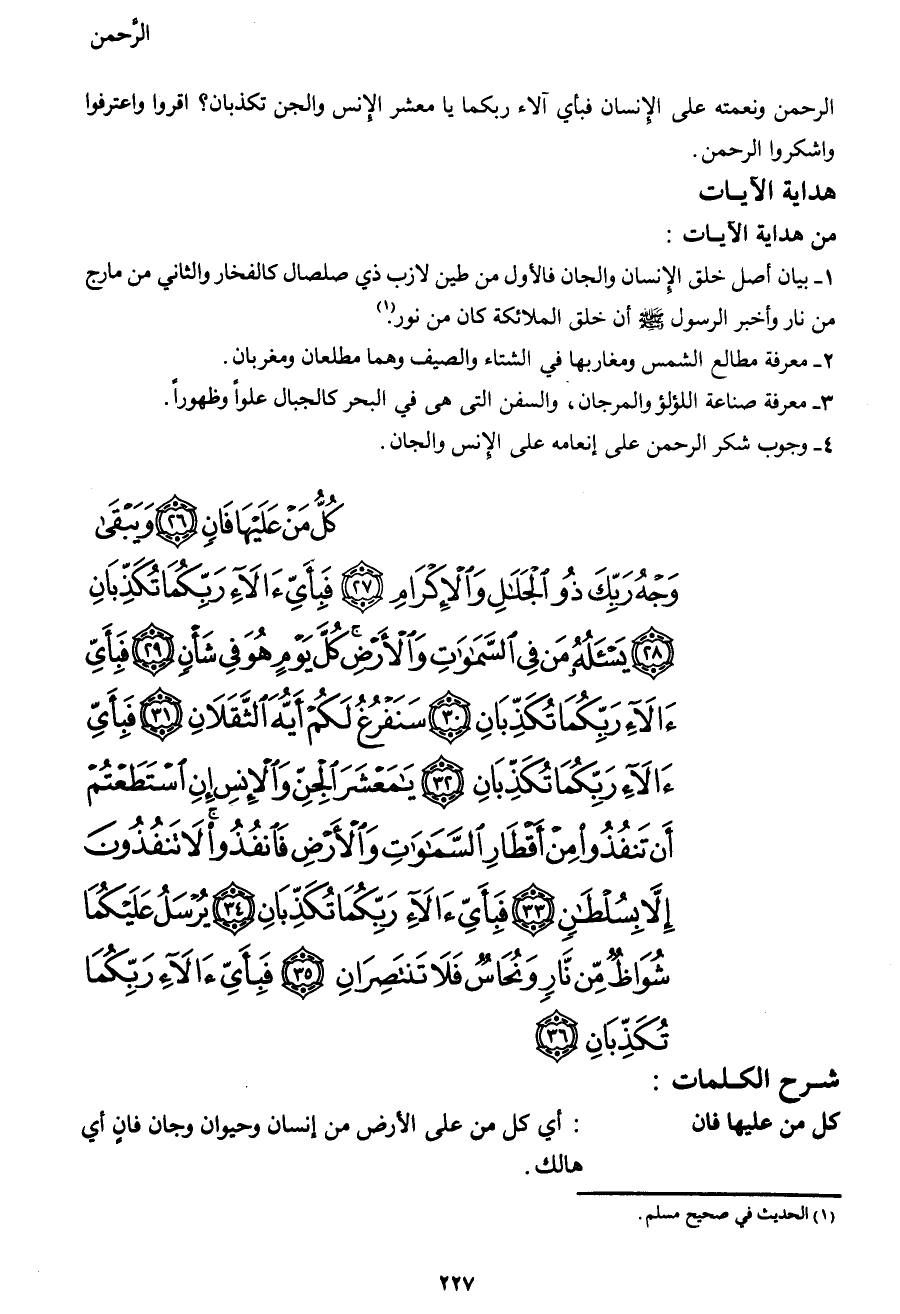 الرَّحمن
الرحمن ونعمته على الإنسان فبأي آلاء ربكما يا معشر الإنس والجن تكذبان؟ اقروا واعترفوا
واشكروا الرحمن.
هداية الآيـات
من هداية الآيـات :
١ـ بيان أصل خلق الإنسان والجان فالأول من طين لازب ذي صلصال كالفخار والثاني من مارج
من نار وأخبر الرسول ﷺ أن خلق الملائكة كان من نور.(١)
٢ـ معرفة مطالع الشمس ومغاربها في الشتاء والصيف وهما مطلعان ومغربان.
٣ـ معرفة صناعة اللؤلؤ والمرجان، والسفن التى هى في البحر كالجبال علواً وظهوراً.
٤ـ وجوب شكر الرحمن على إنعامه على الإنس والجان.
كُلُّ مَنْ عَلَيْهَا فَانٍ ﴿٢٦﴾ وَيَبْقَىٰ
وَجْهُ رَبِّكَ ذُو الْجَلَٰلِ وَالْإِكْرَامِ ﴿٢٧﴾ فَبِأَيِّ ءَالَآءِ رَبِّكُمَا تُكَذِّبَانِ
﴿٢٨﴾ يَسْـَٔلُهُۥ مَن فِى السَّمَٰوَٰتِ وَالْأَرْضِ ۚ كُلَّ يَوْمٍ هُوَ فِى شَأْنٍ ﴿٢٩﴾ فَبِأَيِّ
ءَالَآءِ رَبِّكُمَا تُكَذِّبَانِ ﴿٣٠﴾ سَنَفْرُغُ لَكُمْ أَيُّهَ الثَّقَلَانِ ﴿٣١﴾ فَبِأَيِّ
ءَالَآءِ رَبِّكُمَا تُكَذِّبَانِ ﴿٣٢﴾ يَٰمَعْشَرَ الْجِنِّ وَالْإِنسِ إِنِ اسْتَطَعْتُمْ
أَن تَنفُذُوا۟ مِنْ أَقْطَارِ السَّمَٰوَٰتِ وَالْأَرْضِ فَانفُذُوا۟ ۚ لَا تَنفُذُونَ
إِلَّا بِسُلْطَٰنٍ ﴿٣٣﴾ فَبِأَيِّ ءَالَآءِ رَبِّكُمَا تُكَذِّبَانِ ﴿٣٤﴾ يُرْسَلُ عَلَيْكُمَا
شُوَاظٌ مِّن نَّارٍ وَنُحَاسٌ فَلَا تَنتَصِرَانِ ﴿٣٥﴾ فَبِأَيِّ ءَالَآءِ رَبِّكُمَا
تُكَذِّبَانِ ﴿٣٦﴾
شـرح الكـلمات :
كل من عليها فان : أي كل من على الأرض من إنسان وحيوان وجان فانٍ أي
هالك.
(١) الحديث في صحيح مسلم.
٢٢٧